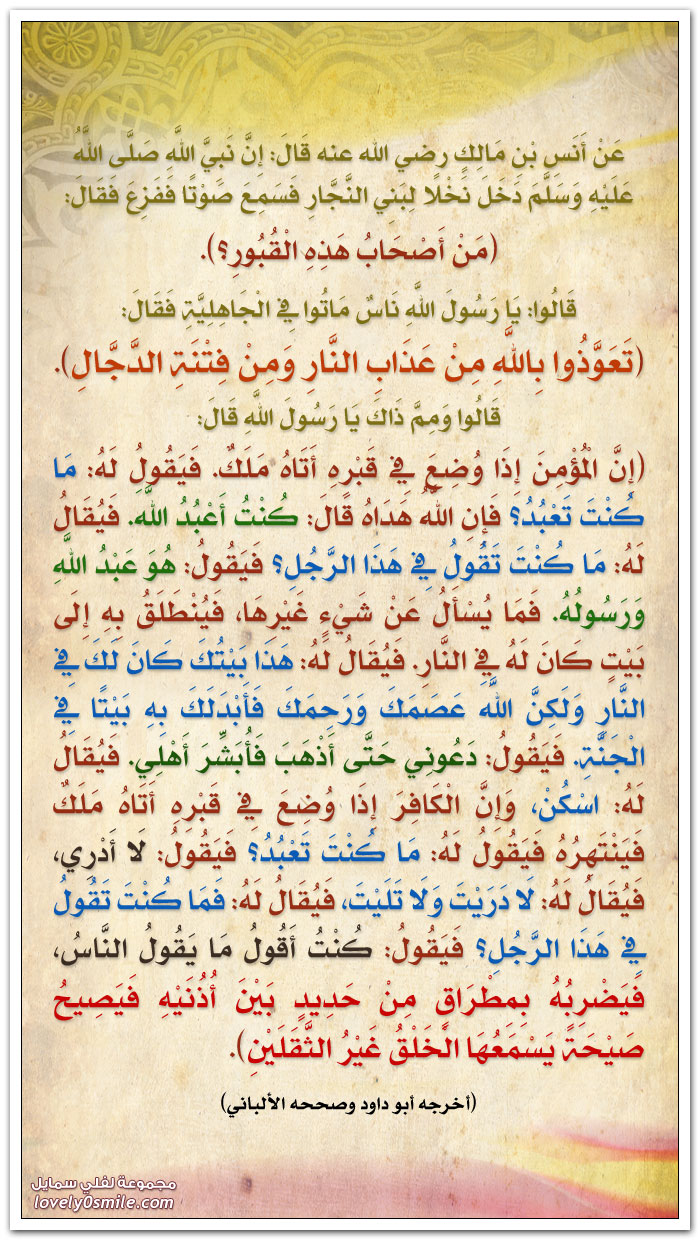 عَنْ أَنَسِ بْنِ مَالِكٍ رضي الله عنه قَالَ: إِنَّ نَبِيَّ اللَّهِ صَلَّى اللَّهُ
عَلَيْهِ وَسَلَّمَ دَخَلَ نَخْلًا لِبَنِي النَّجَّارِ فَسَمِعَ صَوْتًا فَفَزِعَ فَقَالَ:
(مَنْ أَصْحَابُ هَذِهِ الْقُبُورِ؟).
قَالُوا: يَا رَسُولَ اللَّهِ نَاسٌ مَاتُوا فِي الْجَاهِلِيَّةِ فَقَالَ:
(تَعَوَّذُوا بِاللَّهِ مِنْ عَذَابِ النَّارِ وَمِنْ فِتْنَةِ الدَّجَّالِ).
قَالُوا وَمِمَّ ذَاكَ يَا رَسُولَ اللَّهِ قَالَ:
(إِنَّ الْمُؤْمِنَ إِذَا وُضِعَ فِي قَبْرِهِ أَتَاهُ مَلَكٌ. فَيَقُولُ لَهُ: مَا
كُنْتَ تَعْبُدُ؟ فَإِنِ اللَّهُ هَدَاهُ قَالَ: كُنْتُ أَعْبُدُ اللَّه. فَيُقَالُ
لَهُ: مَا كُنْتَ تَقُولُ فِي هَذَا الرَّجُلِ؟ فَيَقُولُ: هُوَ عَبْدُ اللَّهِ
وَرَسُولُهُ. فَمَا يُسْأَلُ عَنْ شَيْءٍ غَيْرِهَا، فَيُنْطَلَقُ بِهِ إِلَى
بَيْتٍ كَانَ لَهُ فِي النَّارِ. فَيُقَالُ لَهُ: هَذَا بَيْتُكَ كَانَ لَكَ فِي
النَّارِ وَلَكِنَّ اللَّهَ عَصَمَكَ وَرَحِمَكَ فَأَبْدَلَكَ بِهِ بَيْتًا فِي
الْجَنَّةِ. فَيَقُولُ: دَعُونِي حَتَّى أَذْهَبَ فَأُبَشِّرَ أَهْلِي. فَيُقَالُ
لَهُ: اسْكُنْ، وَإِنَّ الْكَافِرَ إِذَا وُضِعَ فِي قَبْرِهِ أَتَاهُ مَلَكٌ
فَيَنْتَهِرُهُ فَيَقُولُ لَهُ: مَا كُنْتَ تَعْبُدُ؟ فَيَقُولُ: لَا أَدْرِي،
فَيُقَالُ لَهُ: لَا دَرَيْتَ وَلَا تَلَيْتَ، فَيُقَالُ لَهُ: فَمَا كُنْتَ تَقُولُ
فِي هَذَا الرَّجُلِ؟ فَيَقُولُ: كُنْتُ أَقُولُ مَا يَقُولُ النَّاسُ،
فَيَضْرِبُهُ بِمِطْرَاقٍ مِنْ حَدِيدٍ بَيْنَ أُذُنَيْهِ فَيَصِيحُ
صَيْحَةً يَسْمَعُهَا الْخَلْقُ غَيْرُ الثَّقَلَيْنِ).
(أخرجه أبو داود وصححه الألباني)
مجموعة لفلي سمايل
lovely0smile.com